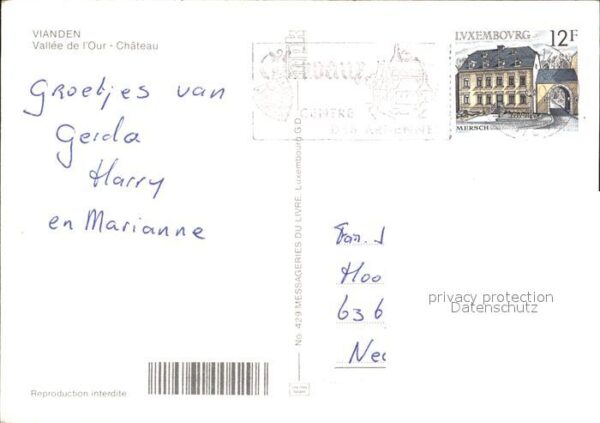 VIANDEN
Vallée de l'Our - Château
Groetjes van
Gerda
Harry
en Marianne
Clervaux
CENTRE
DES ARDENNES
LUXEMBOURG 12F
MERSCH
No. 429 MESSAGERIES DU LIVRE, Luxembourg G.D.
Fam. J
Hoo
636
Ned
privacy protection
Datenschutz
Reproduction interdite